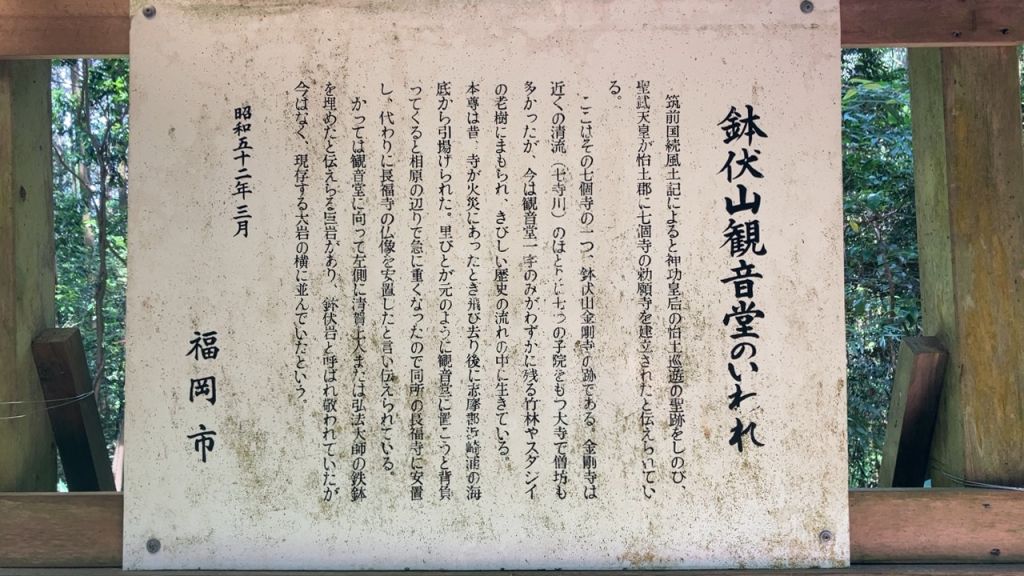 鉢伏山観音堂のいわれ
筑前国続風土記によると神功皇后の怡土巡遊の聖跡をしのび、
聖武天皇が怡土郡に七個寺の勅願寺を建立されたと伝えられてい
る。
ここはその七個寺の一つ、鉢伏山金剛寺の跡である。金剛寺は
近くの清流（七寺川）のほとりに七つの子院をもつ大寺で僧坊も
多かったが、今は観音堂一宇のみがわずかに残る竹林やスダジイ
の老樹にまもられ、きびしい歴史の流れの中に生きている。
本尊は昔、寺が火災にあったとき飛び去り後に志摩郡岩崎浦の海
底から引揚げられた。里びとが元のように観音堂に置こうと背負
ってくると相原の辺りで急に重くなったので同所の長福寺に安置
し、代わりに長福寺の仏像を安置したと言い伝えられている。
かっては観音堂に向って左側に清賀上人または弘法大師の鉄鉢
を埋めたと伝えらる巨岩があり、鉢伏岩と呼ばれ敬われていたが
今はなく、現存する大岩の横に並んでいたという。
昭和五十二年三月
福岡市